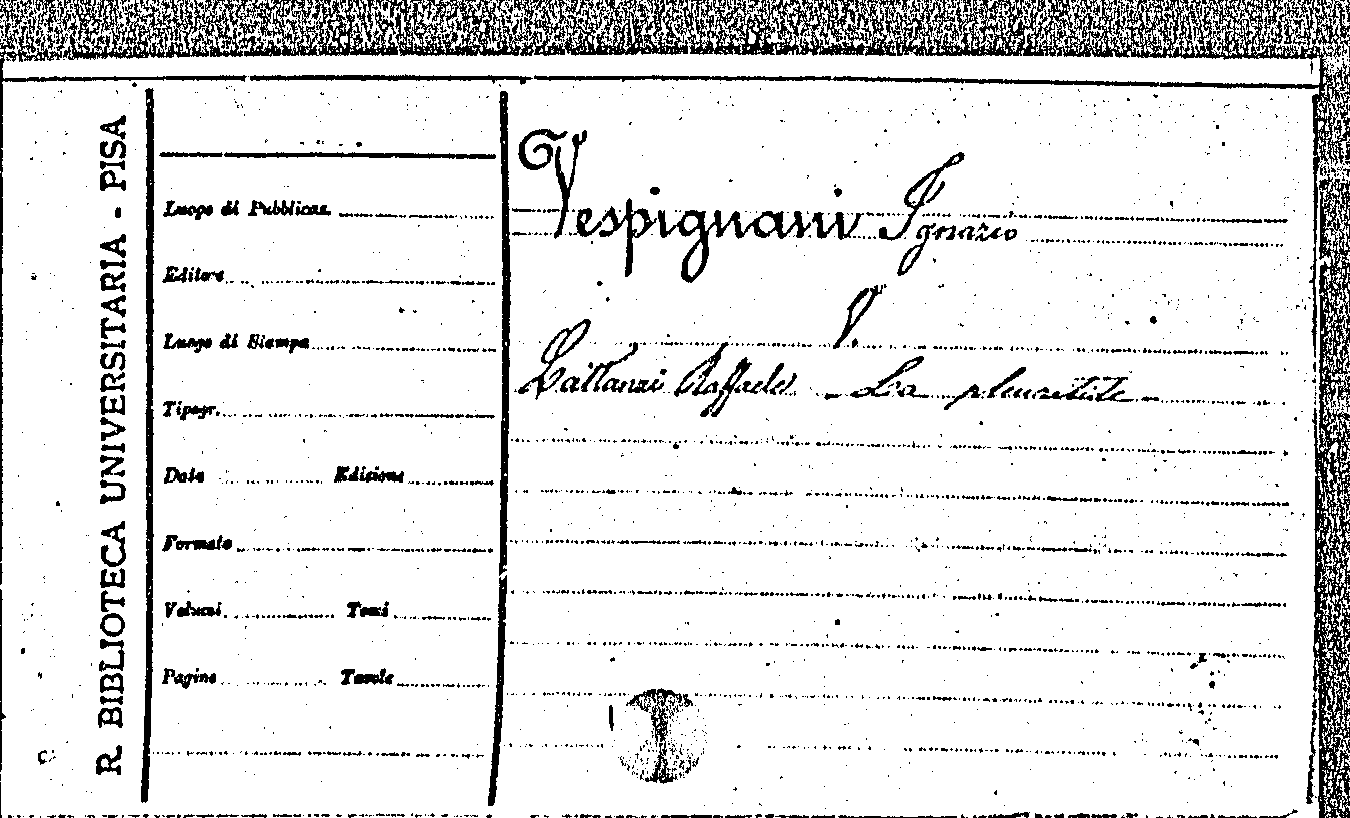 R. BIBLIOTECA UNIVERSITARIA - PISA
Luogo di Pubblicaz.
Editore
Luogo di Stampa
Tipogr.
Data Edizione
Formato
Volumi Tomi
Pagine Tavole
Vespignani Ignazio
V.
Lattanzi Raffaele - La pleuritide -